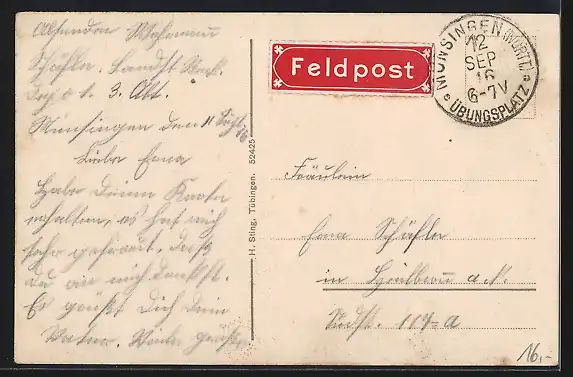 Absender Wehrmann
Schäfler. Landst. Batl.
Inf. 1. 3. Abt.
Münsingen den 11 Sept. 16
Liebe Erna
Habe deine Karte
erhalten, es hat mich
sehr gefreut, daß
du an mich denkst.
Es grüßt Dich dein
Vater. Viele Grüße
H. Sting, Tübingen. 52425
Feldpost
MÜNSINGEN (WÜRTT.)
12
SEP
16
6-7V
ÜBUNGSPLATZ
Fräulein
Erna Schäfler
in Heilbronn a. N.
Südst. 117=a
16.-